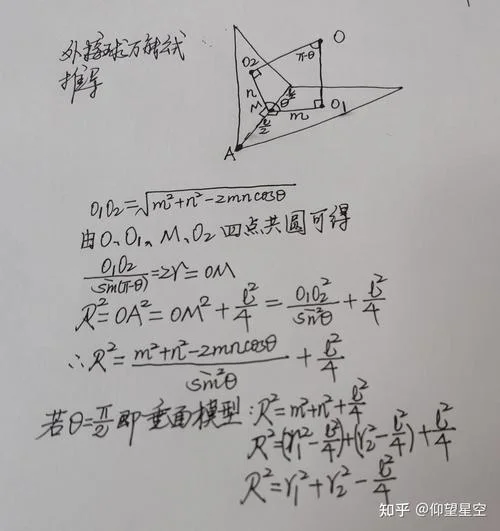 外接球万能公式
推导
O
π-θ
O₂
n
l/2
θ
M
m
O₁
l/2
A
O₁O₂=√(m²+n²-2mncosθ)
由O、O₁、M、O₂四点共圆可得
O₁O₂/sin(π-θ)=2r=OM
R²=OA²=OM²+l²/4=O₁O₂²/sin²θ+l²/4
∴R²=(m²+n²-2mncosθ)/sin²θ+l²/4
若θ=π/2即垂面模型:R²=m²+n²+l²/4
R²=(r₁²-l²/4)+(r₂²-l²/4)+l²/4
R²=r₁²+r₂²-l²/4
知乎 @仰望星空